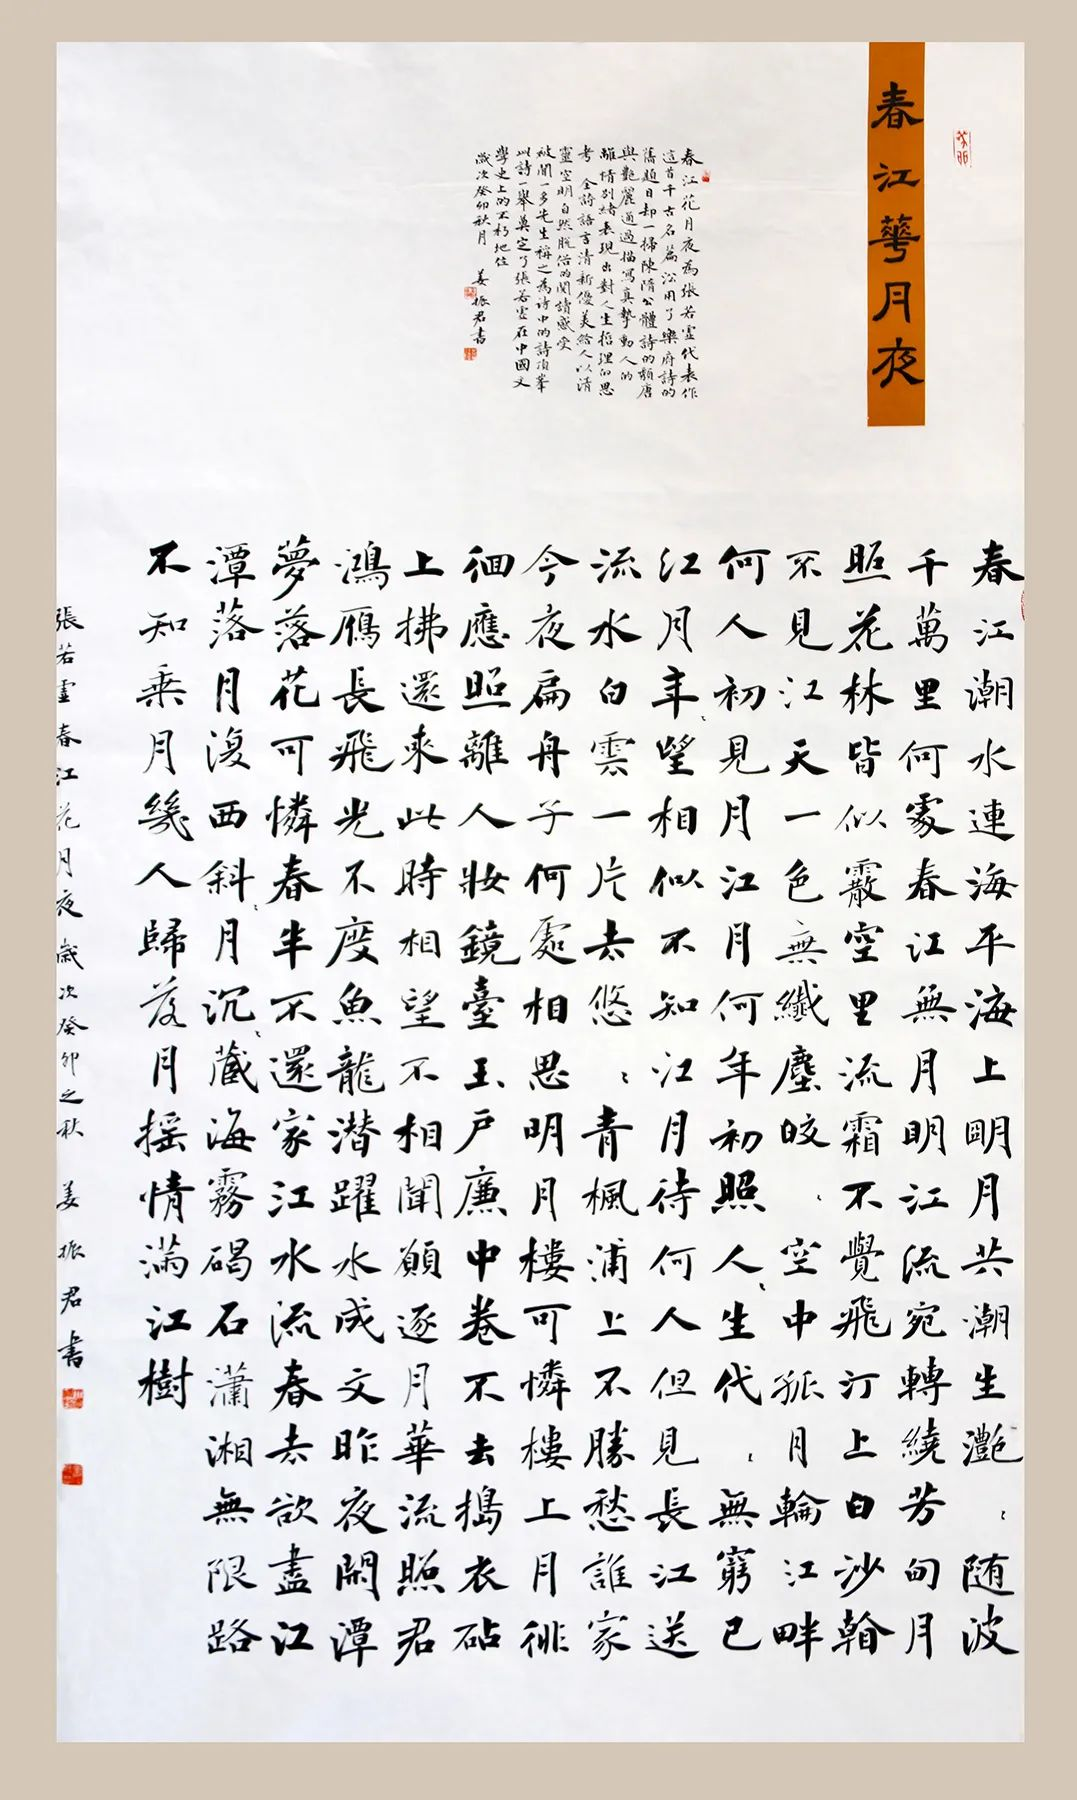 春江華月夜
春江花月夜為張若虛代表作
這首千古名篇沿用了樂府詩的
舊題目却一掃陳隋公體詩的頹唐
與艷麗通過描寫真摯動人的
離情別緒表現出對人生哲理的思
考 全詩語言清新優美給人以清
靈空明自然脫俗的閱讀感受
被聞一多先生稱之為詩中的詩頂峯
此詩一舉奠定了張若虛在中國文
學史上的不朽地位
歲次癸卯秋月 姜振君書
春江潮水連海平海上明月共潮生灧〻随波
千萬里何處春江無月明江流宛轉繞芳甸月
照花林皆似霰空里流霜不覺飛汀上白沙翰
不見江天一色無纖塵皎〻空中孤月輪江畔
何人初見月江月何年初照人〻生代〻無窮已
江月年〻望相似不知江月待何人但見長江送
流水白雲一片去悠〻青楓浦上不勝愁誰家
今夜扁舟子何處相思明月樓可憐樓上月徘
徊應照離人妝鏡臺玉戶廉中卷不去搗衣砧
上拂還來此時相望不相聞願逐月華流照君
鴻雁長飛光不度魚龍潜躍水成文昨夜閑潭
夢落花可憐春半不還家江水流春去欲盡江
潭落月復西斜〻月沉〻藏海霧碣石瀟湘無限路
不知乘月幾人歸落月摇情滿江樹
張若虛春江花月夜歲次癸卯之秋 姜振君書